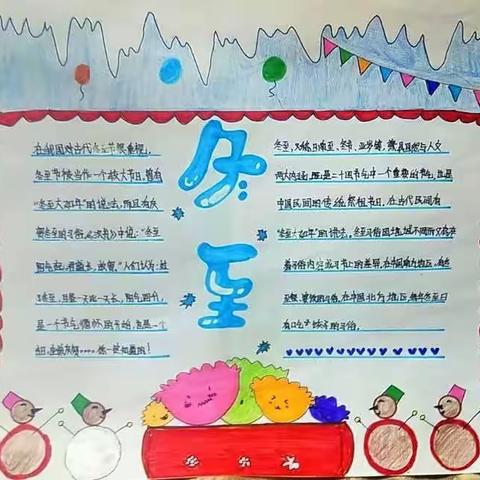 冬至
在我国对古代冬至节很重视,
冬至节被当作一个较大节日,曾有
"冬至大如年"的说法,而且有庆
贺冬至的习俗。《汉书》中说:"冬至
阳气起,君道长,故贺。"人们认为:过
了冬至,白昼一天比一天长,阳气回升,
是一个节气循环的开始,也是一个
吉日,
冬至,又称日南至、冬节、亚岁等,兼具自然与人文
两大内涵,既是二十四节气中一个重要的节气,也是
中国民间的传统祭祖节日,在古代民间有
"冬至大如年"的讲法,冬至习俗因地域不同而又存在
着习俗内容或细节上的差异,在中国南方地区,有冬
至祭祖、宴饮的习俗,在中国北方地区,每年冬至日
有吃水饺的习俗,